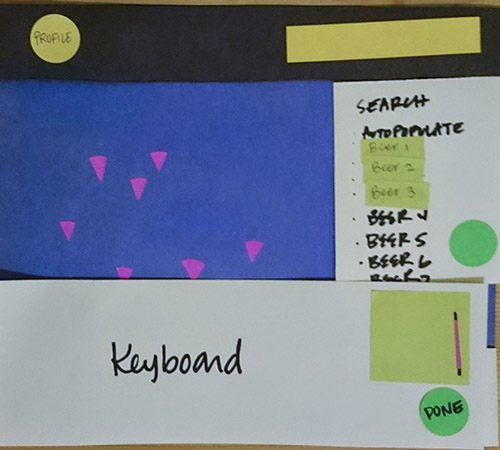 PROFILE
SEARCH
AUTOPOPULATE
BEER 1
BEER 2
BEER 3
BEER 4
BEER 5
BEER 6
BEER 7
Keyboard
DONE